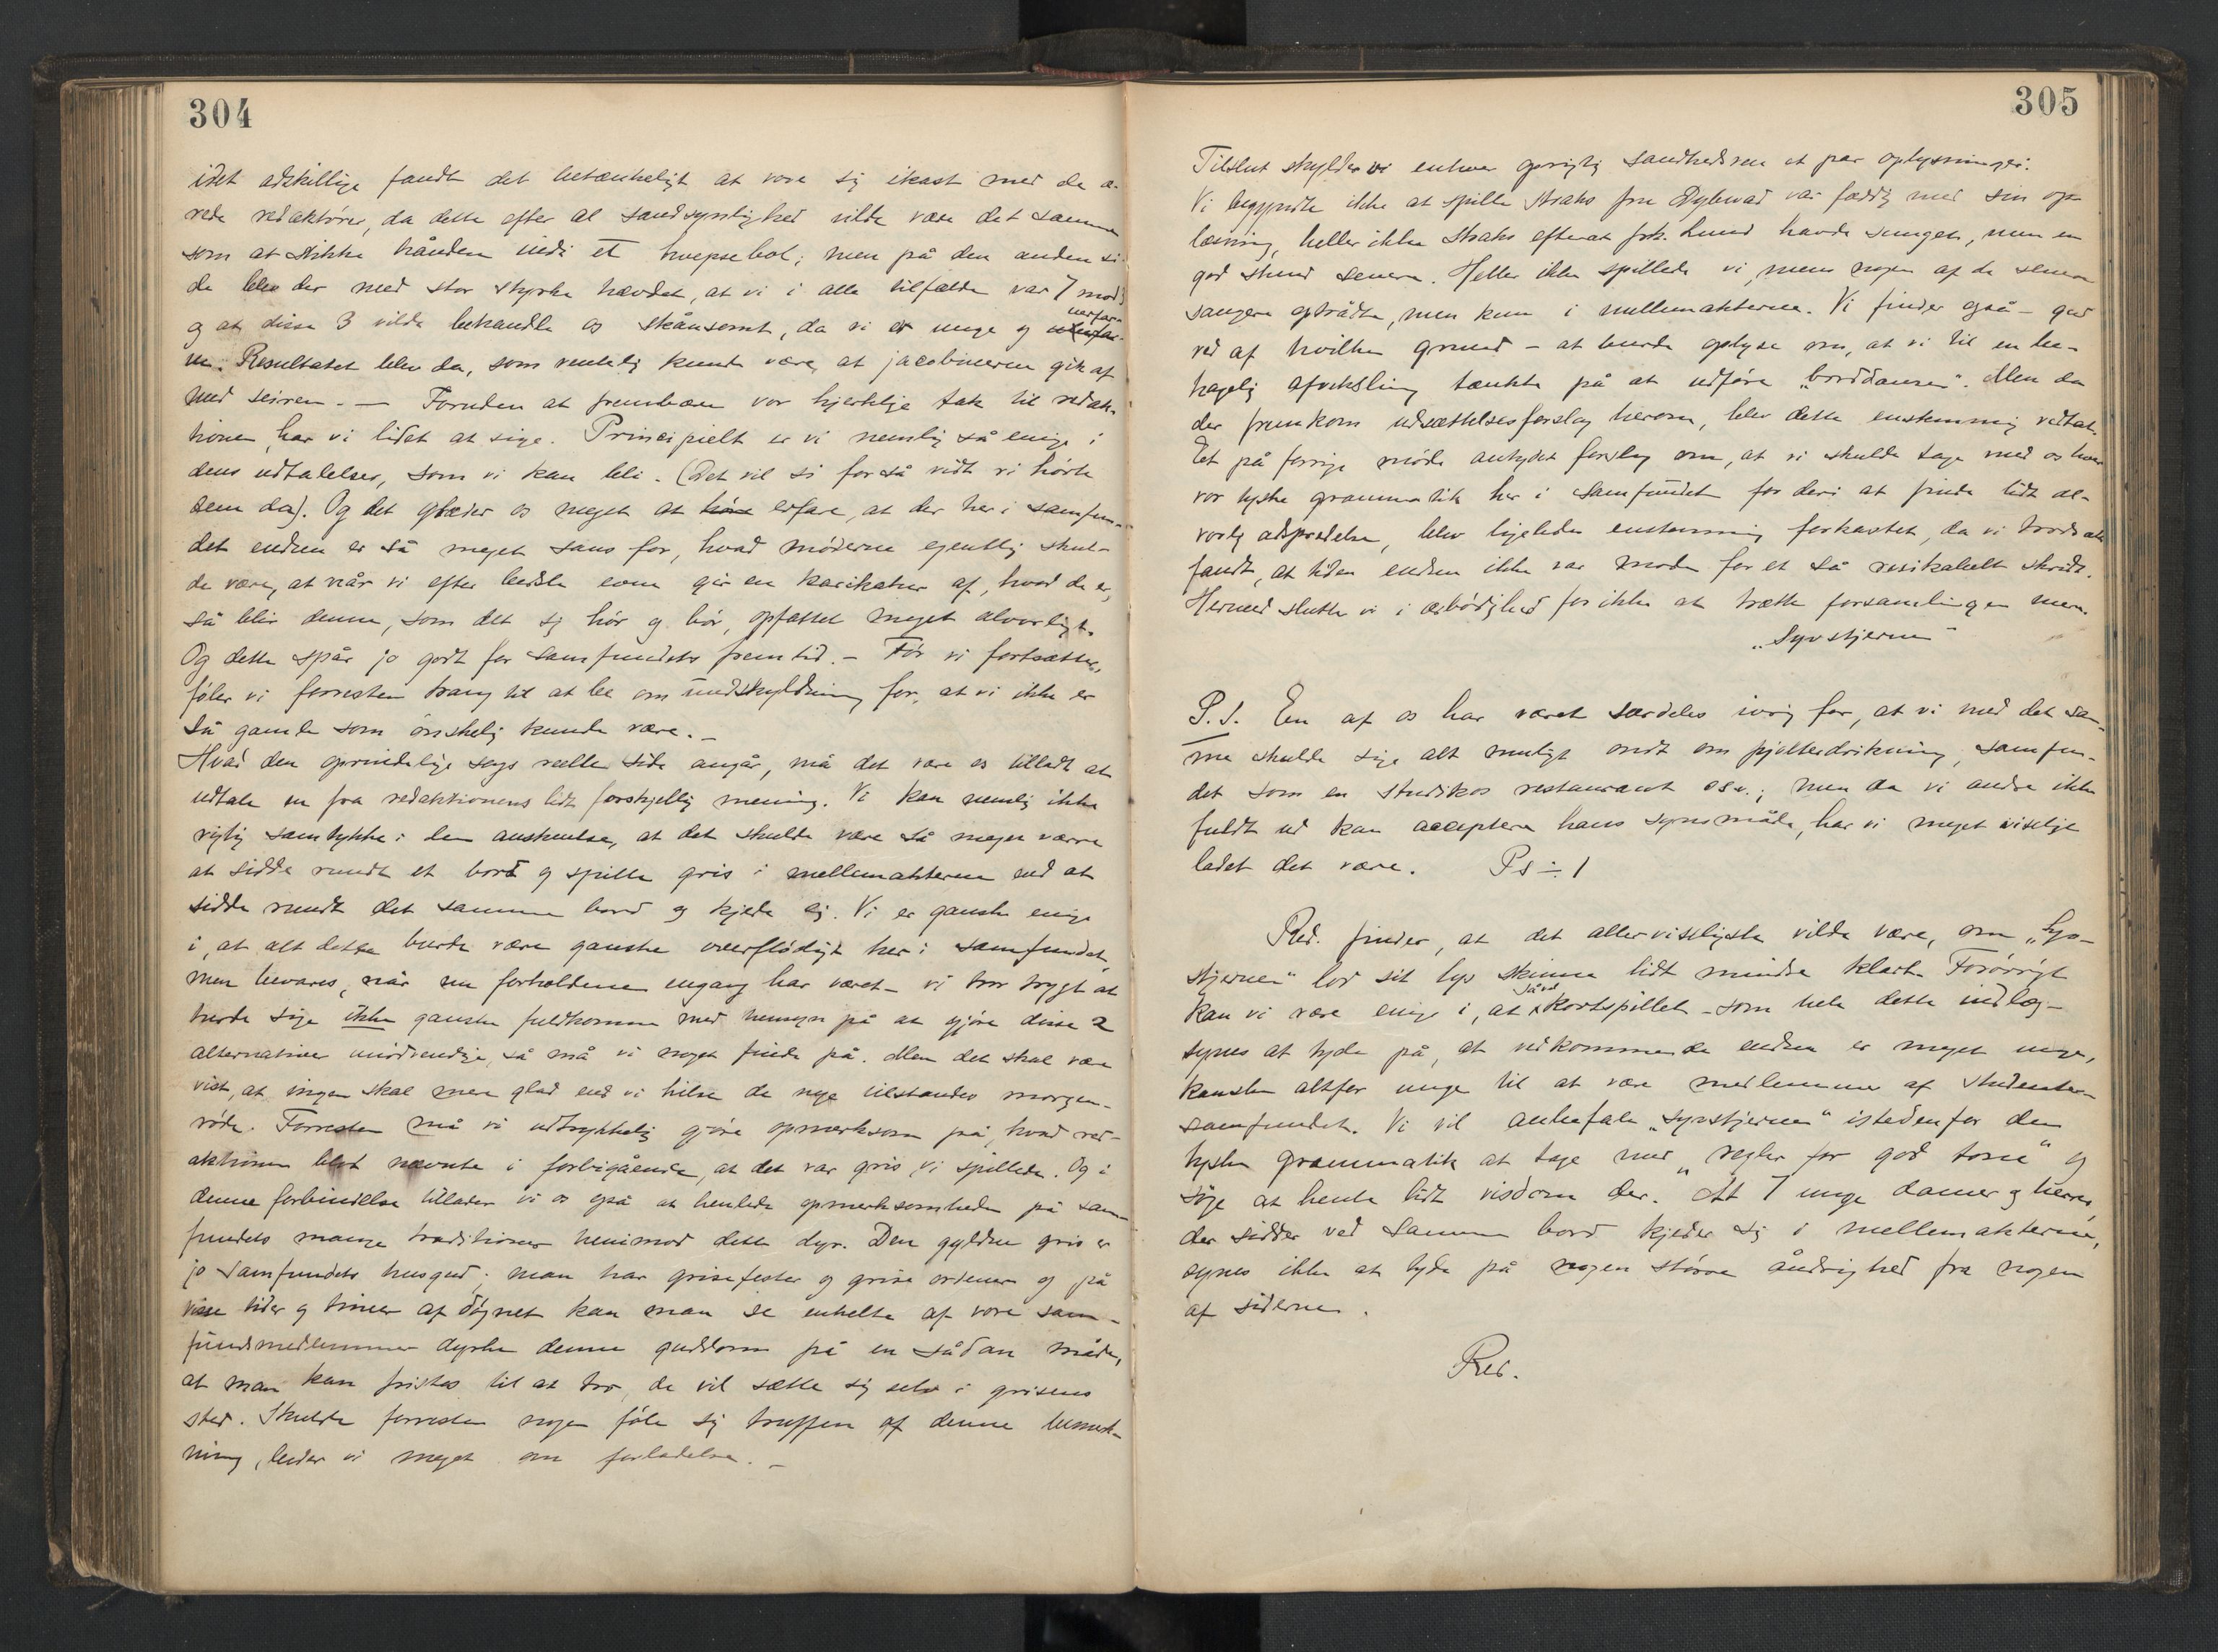 304
idet adskillige fandt det betænkeligt at vove sig ikast med de æ-
rede redaktører, da dette efter al sandsynlighed vilde være det samme
som at stikke hånden indi et hvepsebol; men på den anden si-
de blev der med stor styrke hævdet, at vi i alle tilfælde var 7 mod 3
og at disse 3 vilde behandle os skånsomt, da vi er unge og uerfar-
ne. Resultatet blev da, som rimelig kunde være, at jacobinerne gik af
med seiren. — Foruden at frembære vor hjertelige tak til redak-
tionen, har vi lidet at sige. Principielt er vi nemlig så enige i
dens udtalelser, som vi kan bli. (Det vil si forså vidt vi hørte
dem da). Og det glæder os meget at høre erfare, at der her i samfun-
det endnu er så meget sans for, hvad møderne egentlig skul-
de være, at når vi efter bedste evne gir en karikatur af, hvad de er,
så blir denne, som det sig hør og bør, opfattet meget alvorligt.
Og dette spår jo godt for samfundets fremtid. – Før vi fortsætter,
føler vi forresten trang til at be om undskyldning for, at vi ikke er
så gamle som ønskelig kunde være. –
Hvad den oprindelige sags reelle side angår, må det være os tilladt at
udtale en fra redaktionens lidt forskjellig mening. Vi kan nemlig ikke
rigtig samtykke i den anskuelse, at det skulde være så meget værre
at sidde rundt et bord og spille gris i mellemakterne end at
sidde rundt det samme bord og kjede sig. Vi er ganske enige
i, at alt dette burde være ganske overflødigt her i samfundet,
men bevares, når nu forholdene engang har været – vi tror trygt at
turde sige ikke ganske fuldkomne med hensyn på at gjøre disse 2
alternativer unødvendige, så må vi noget finde på. Men det skal være
vist, at ingen skal mere glad end vi hilse de nye tilstandes morgen-
røde. Forresten må vi udtrykkelig gjøre opmerksom på, hvad red-
aktionen blot nævnte i forbigående, at det var gris, vi spillede. Og i
denne forbindelse tillader vi os også at henlede opmerksomheden på sam-
fundets mange traditioner henimod dette dyr. Den gyldne gris er
jo samfundets husgud; man har grisefester og grise ordener og på
visse tider og timer af døgnet kan man se enkelte af vore sam-
fundsmedlemmer dyrke denne guddom på en sådan måde,
at man kan fristes til at tro, de vil sætte sig selv i grisens
sted. Skulde forresten nogen føle sig truffen af denne bemerk-
ning, beder vi meget om forladelse. –
305
Tilslut skylder vi enhver oprigtig sandhedsven et par oplysninger:
Vi begyndte ikke at spille straks fru Dybwad var færdig med sin op-
læsning, heller ikke straks efterat frk. Lund havde sunget, men en
god stund senere. Heller ikke spillede vi, mens nogen af de senere
sangere optrådte, men kun i mellemakterne. Vi finder også – gud
ved af hvilken grund – at burde oplyse om, at vi til en be-
hagelig afveksling tænkte på at udføre „borddansen“. Men da
der fremkom udsættelsesforslag herom, blev dette enstemmig vedtat.
Et på forrige møde antydet forslag om, at vi skulde tage med os hver
vor tyske grammatik her i samfundet for deri at finde lidt al-
vorlig adspredelse, blev ligeledes enstemmig forkastet, da vi trods alt
fandt, at tiden endnu ikke var moden for et så radikalt skridt.
Hermed slutter vi i ærbødighed for ikke at trætte forsamlingen mere.
„Syvstjernen“
P.S. En af os har været særdeles ivrig for, at vi med det sam-
me skulde sige alt muligt ondt om pjolterdrikning, samfun-
det som en studikos restaurant osv.; men da vi andre ikke
fuldt ud kan acceptere hans synsmåde, har vi meget viselig
ladet det være. Ps ÷ 1
Red. finder, at det allerviseligste vilde være, om „Syv-
stjernen“ lod sit lys skinne lidt mindre klart. Forøvrigt
kan vi være enige i, at såvel kortspillet – som hele dette indlæg –
synes at tyde på, at vedkommende endnu er meget unge,
kanske altfor unge til at være medlemmer af Studenter-
samfundet. Vi vil anbefale „syvstjernen“ istedenfor den
tyske grammatik at tage med „regler for god tone“ og
søge at hente lidt visdom der. At 7 unge damer og herrer,
der sidder ved samme bord kjeder sig i mellemakterne,
synes ikke at tyde på nogen større åndrighed fra nogen
af siderne.
Red.